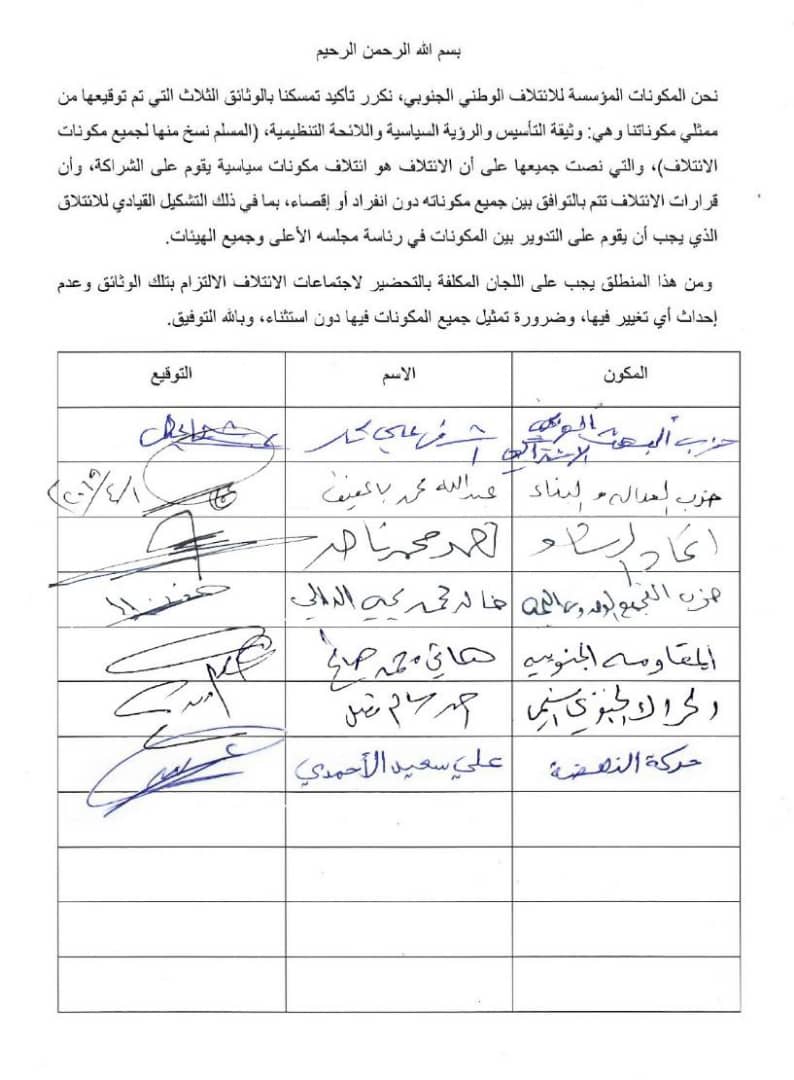 بسم الله الرحمن الرحيم
نحن المكونات المؤسسة للائتلاف الوطني الجنوبي، نكرر تأكيد تمسكنا بالوثائق الثلاث التي تم توقيعها من
ممثلي مكوناتنا وهي: وثيقة التأسيس والرؤية السياسية واللائحة التنظيمية، (المسلم نسخ منها لجميع مكونات
الائتلاف)، والتي نصت جميعها على أن الائتلاف هو ائتلاف مكونات سياسية يقوم على الشراكة، وأن
قرارات الائتلاف تتم بالتوافق بين جميع مكوناته دون انفراد أو إقصاء، بما في ذلك التشكيل القيادي للائتلاق
الذي يجب أن يقوم على التدوير بين المكونات في رئاسة مجلسه الأعلى وجميع الهيئات.
ومن هذا المنطلق يجب على اللجان المكلفة بالتحضير لاجتماعات الائتلاف الالتزام بتلك الوثائق وعدم
إحداث أي تغيير فيها، وضرورة تمثيل جميع المكونات فيها دون استثناء، وبالله التوفيق.
المكون الاسم التوقيع
حزب البعث العربي
الاشتراكي علي
حزب العدالة والبناء عبدالله محمد باعفيف ٢٠١٩/٤/١
اتحاد الرشاد محمد ناصر
حزب التجمع خالد محمد يحيى
المقاومه الجنوبيه هاني محمد صالح
الحراك الجنوبي السلمي احمد سالم
حركة النهضة علي سعيد الأحمدي